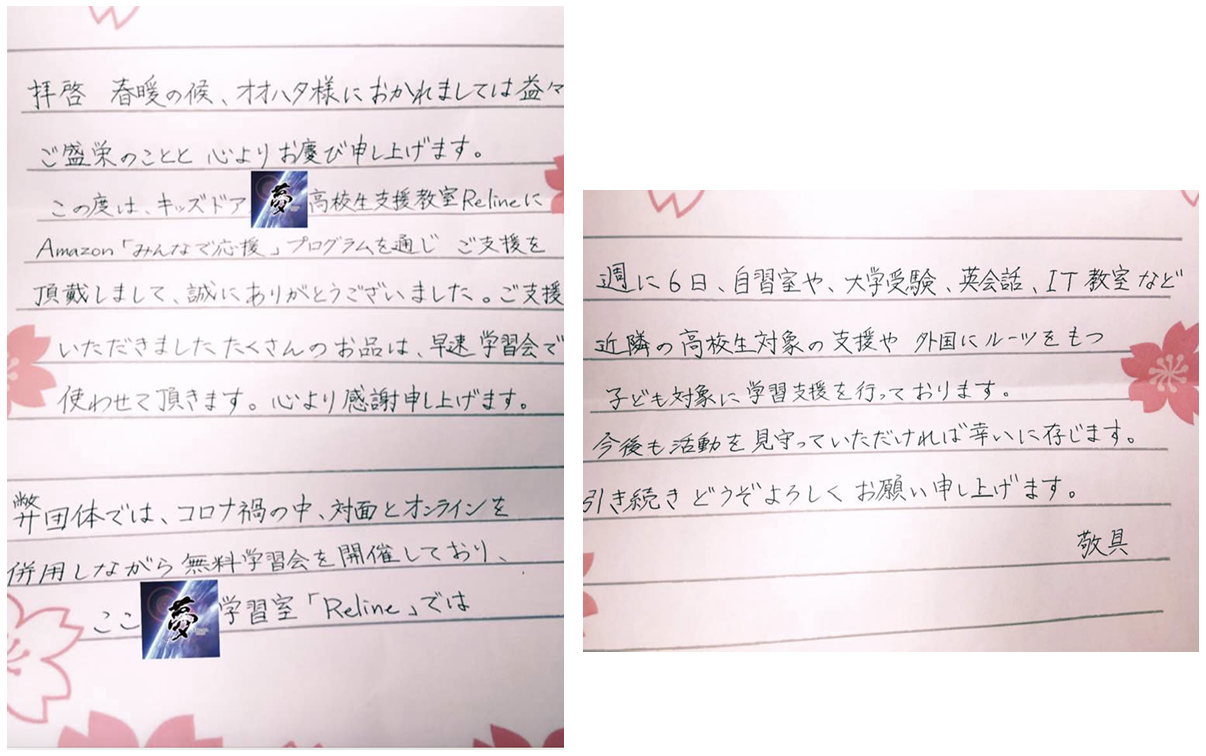 拝啓 春暖の候、オオハタ様におかれましては益々
ご盛栄のことと 心よりお慶び申し上げます。
この度は、キッズドア 夢 高校生支援教室Relineに
Amazon「みんなで応援」プログラムを通じ ご支援を
頂戴しまして、誠にありがとうございました。ご支援
いただきましたたくさんのお品は、早速 学習会で
使わせて頂きます。心より感謝申し上げます。
弊団体では、コロナ禍の中、対面とオンラインを
併用しながら 無料学習会を開催しており、
ここ 夢 学習室「Reline」では
週に6日、自習室や、大学受験、英会話、IT教室など
近隣の高校生対象の支援や 外国にルーツをもつ
子ども対象に学習支援を行っております。
今後も活動を見守っていただければ幸いに存じます。
引き続き どうぞよろしく お願い申し上げます。
敬具